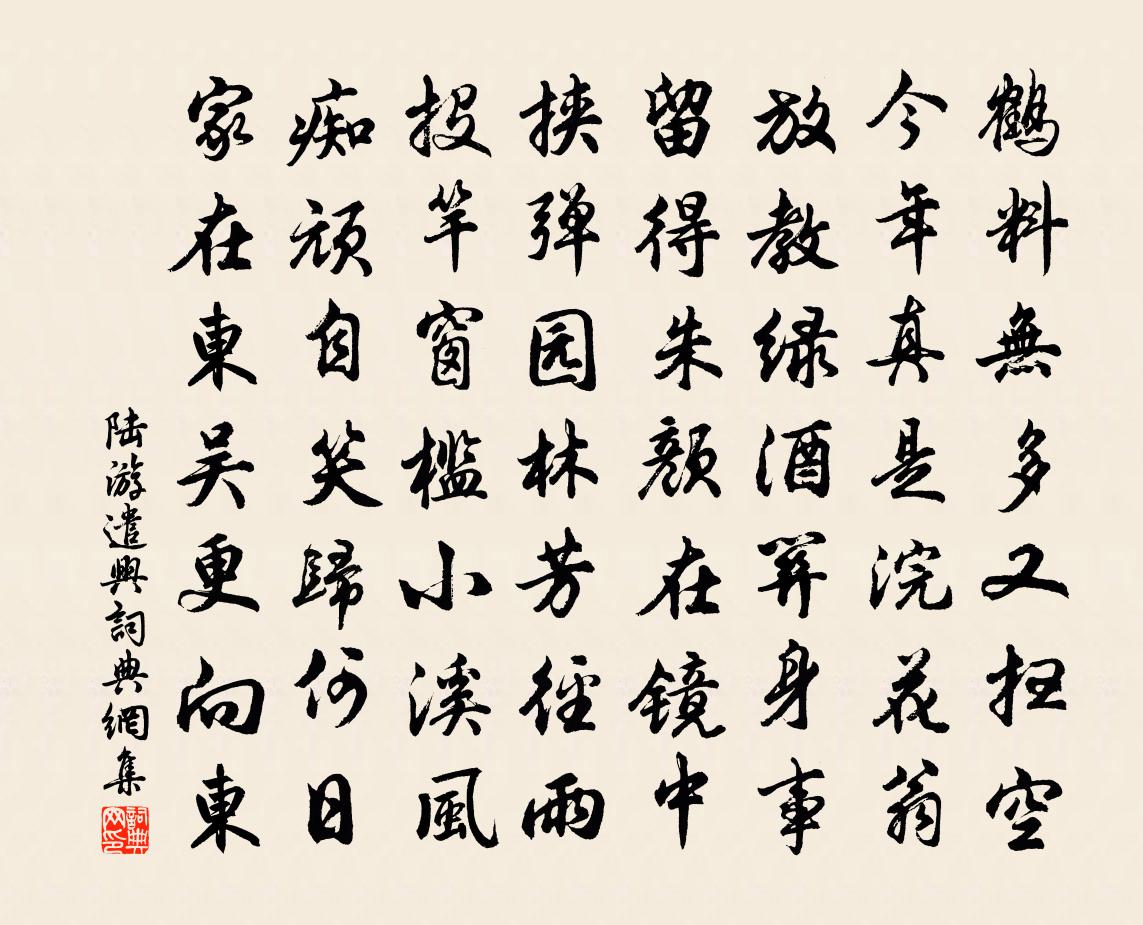 鶴料無多又扫空
今年真是浣花翁
放教绿酒關身事
留得朱颜在镜中
挟弹园林芳徑雨
投竿窗槛小溪風
痴顽自笑歸何日
家在東吴更向東
陆游遣興詞典網集
詞典网印